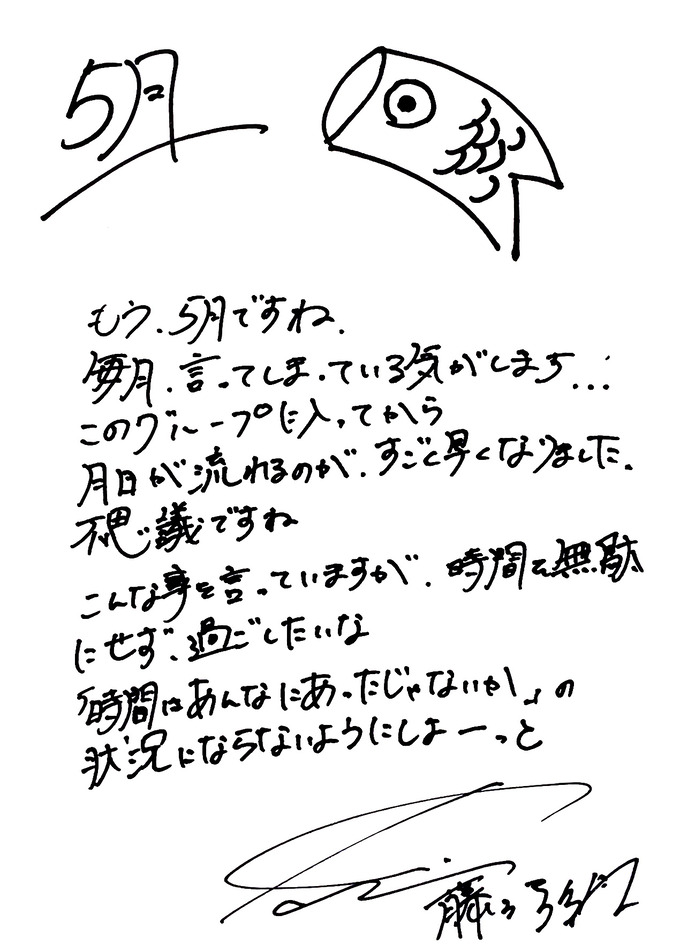 5月
もう、5月ですね。
毎月、言ってしまっている気がしまち...
このグループに入ってから
月日が流れるのが、すごく早くなりました。
不思議ですね
こんな事を言っていますが、時間を無駄
にせず、過ごしたいな
「時間はあんなにあったじゃないか」の
状況にならないようにしよーっと